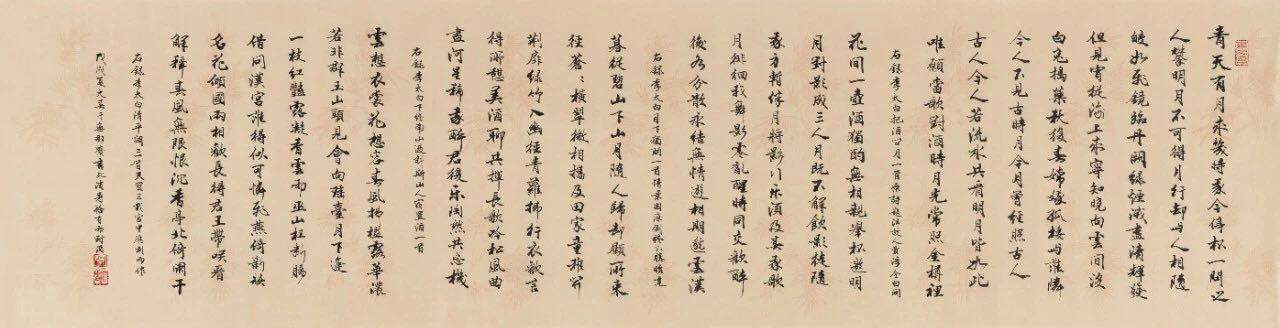 青天有月來幾時我今停杯一問之
人攀明月不可得月行却与人相隨
皎如飛鏡臨丹闕綠煙滅盡清輝發
但見宵從海上來寧知曉向雲間沒
白兔搗藥秋復春嫦娥孤棲与誰隣
今人不見古時月今月曾經照古人
古人今人若流水共看明月皆如此
唯願當歌對酒時月光常照金樽裡
右録李太白把酒問月一首原詩題注故人賈淳令白問
花間一壺酒獨酌無相親舉杯邀明
月對影成三人月既不解飲影徒隨
我身暫伴月將影行樂須及春我歌
月徘徊我舞影零亂醒時同交歡醉
後各分散永結無情遊相期邈雲漢
右録李太白月下獨酌一首
暮從碧山下山月隨人歸却顧所來
徑蒼〻橫翠微相攜及田家童稚開
荊扉綠竹入幽徑青蘿拂行衣歡言
得所憩美酒聊共揮長歌吟松風曲
盡河星稀我醉君復樂陶然共忘機
右録李太白下終南山過斛斯山人宿置酒一首
雲想衣裳花想容春風拂檻露華濃
若非群玉山頭見會向瑤臺月下逢
一枝紅豔露凝香雲雨巫山枉斷腸
借問漢宮誰得似可憐飛燕倚新妝
名花傾國兩相歡長得君王帶咲看
解釋春風無限恨沉香亭北倚闌干
右録李太白清平調三首天寶三載宮中應制而作
戊戌